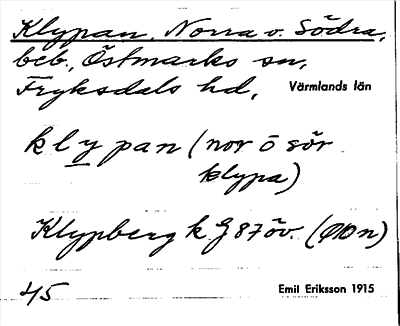 Klypan, Norra o. Södra,
beb., Östmarks sn,
Fryksdals hd, Värmlands län
klypan (nor ō sör
klypa)
Klypberg k G 87 öv. (ØØn)
45 Emil Eriksson 1915